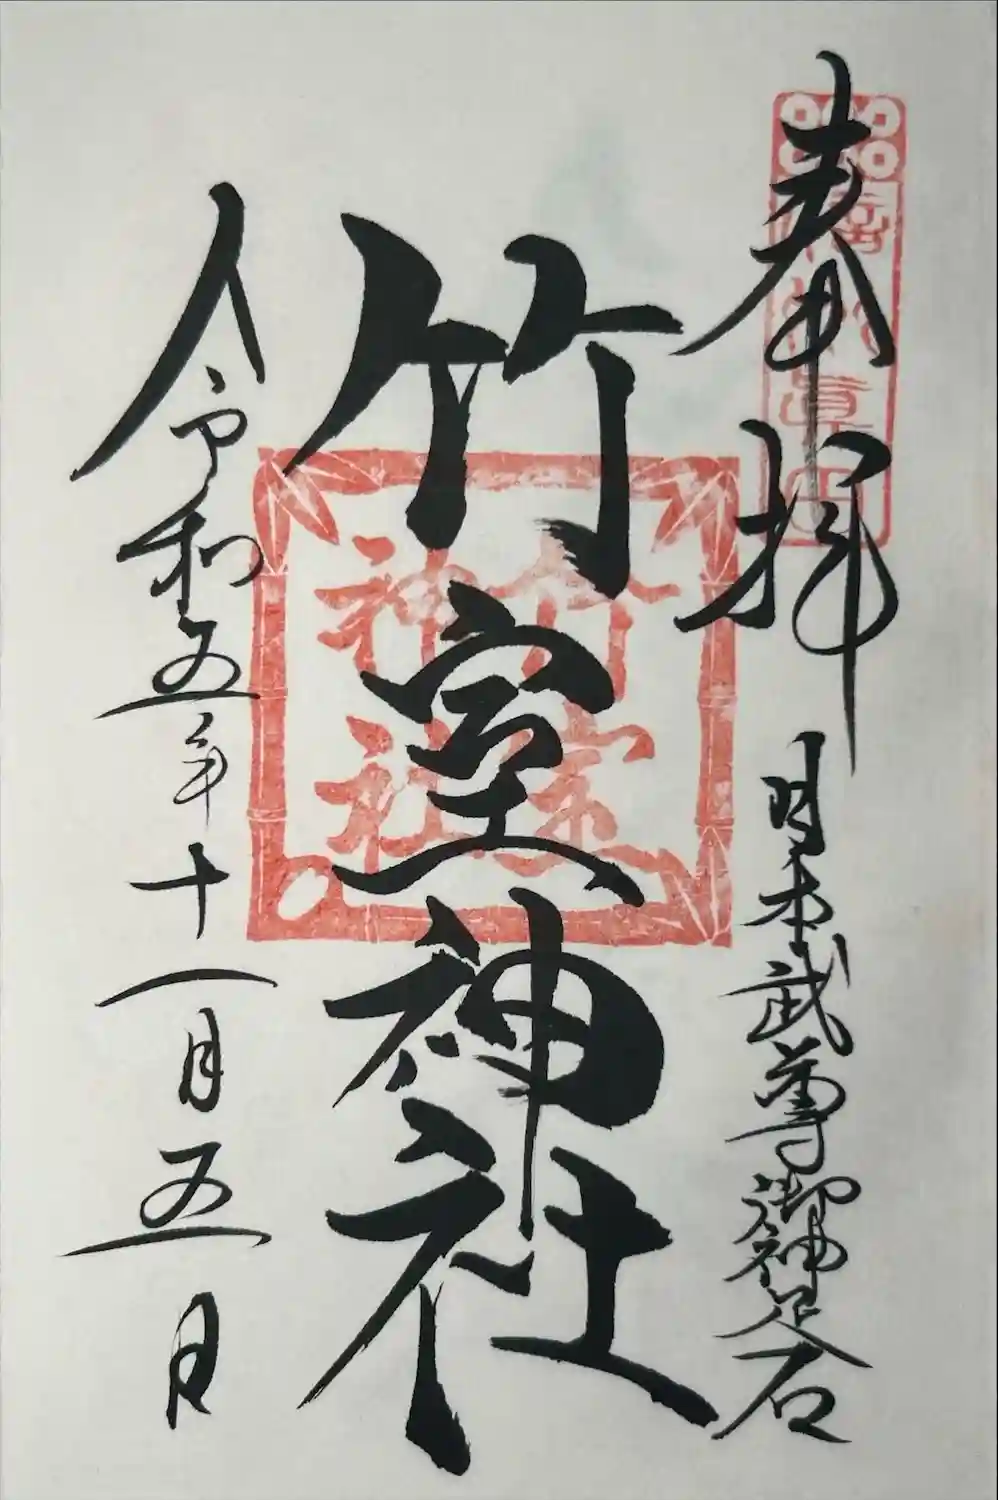 奉拝
日本武尊御神足石
竹室神社
竹室
神社
令和五年十一月五日